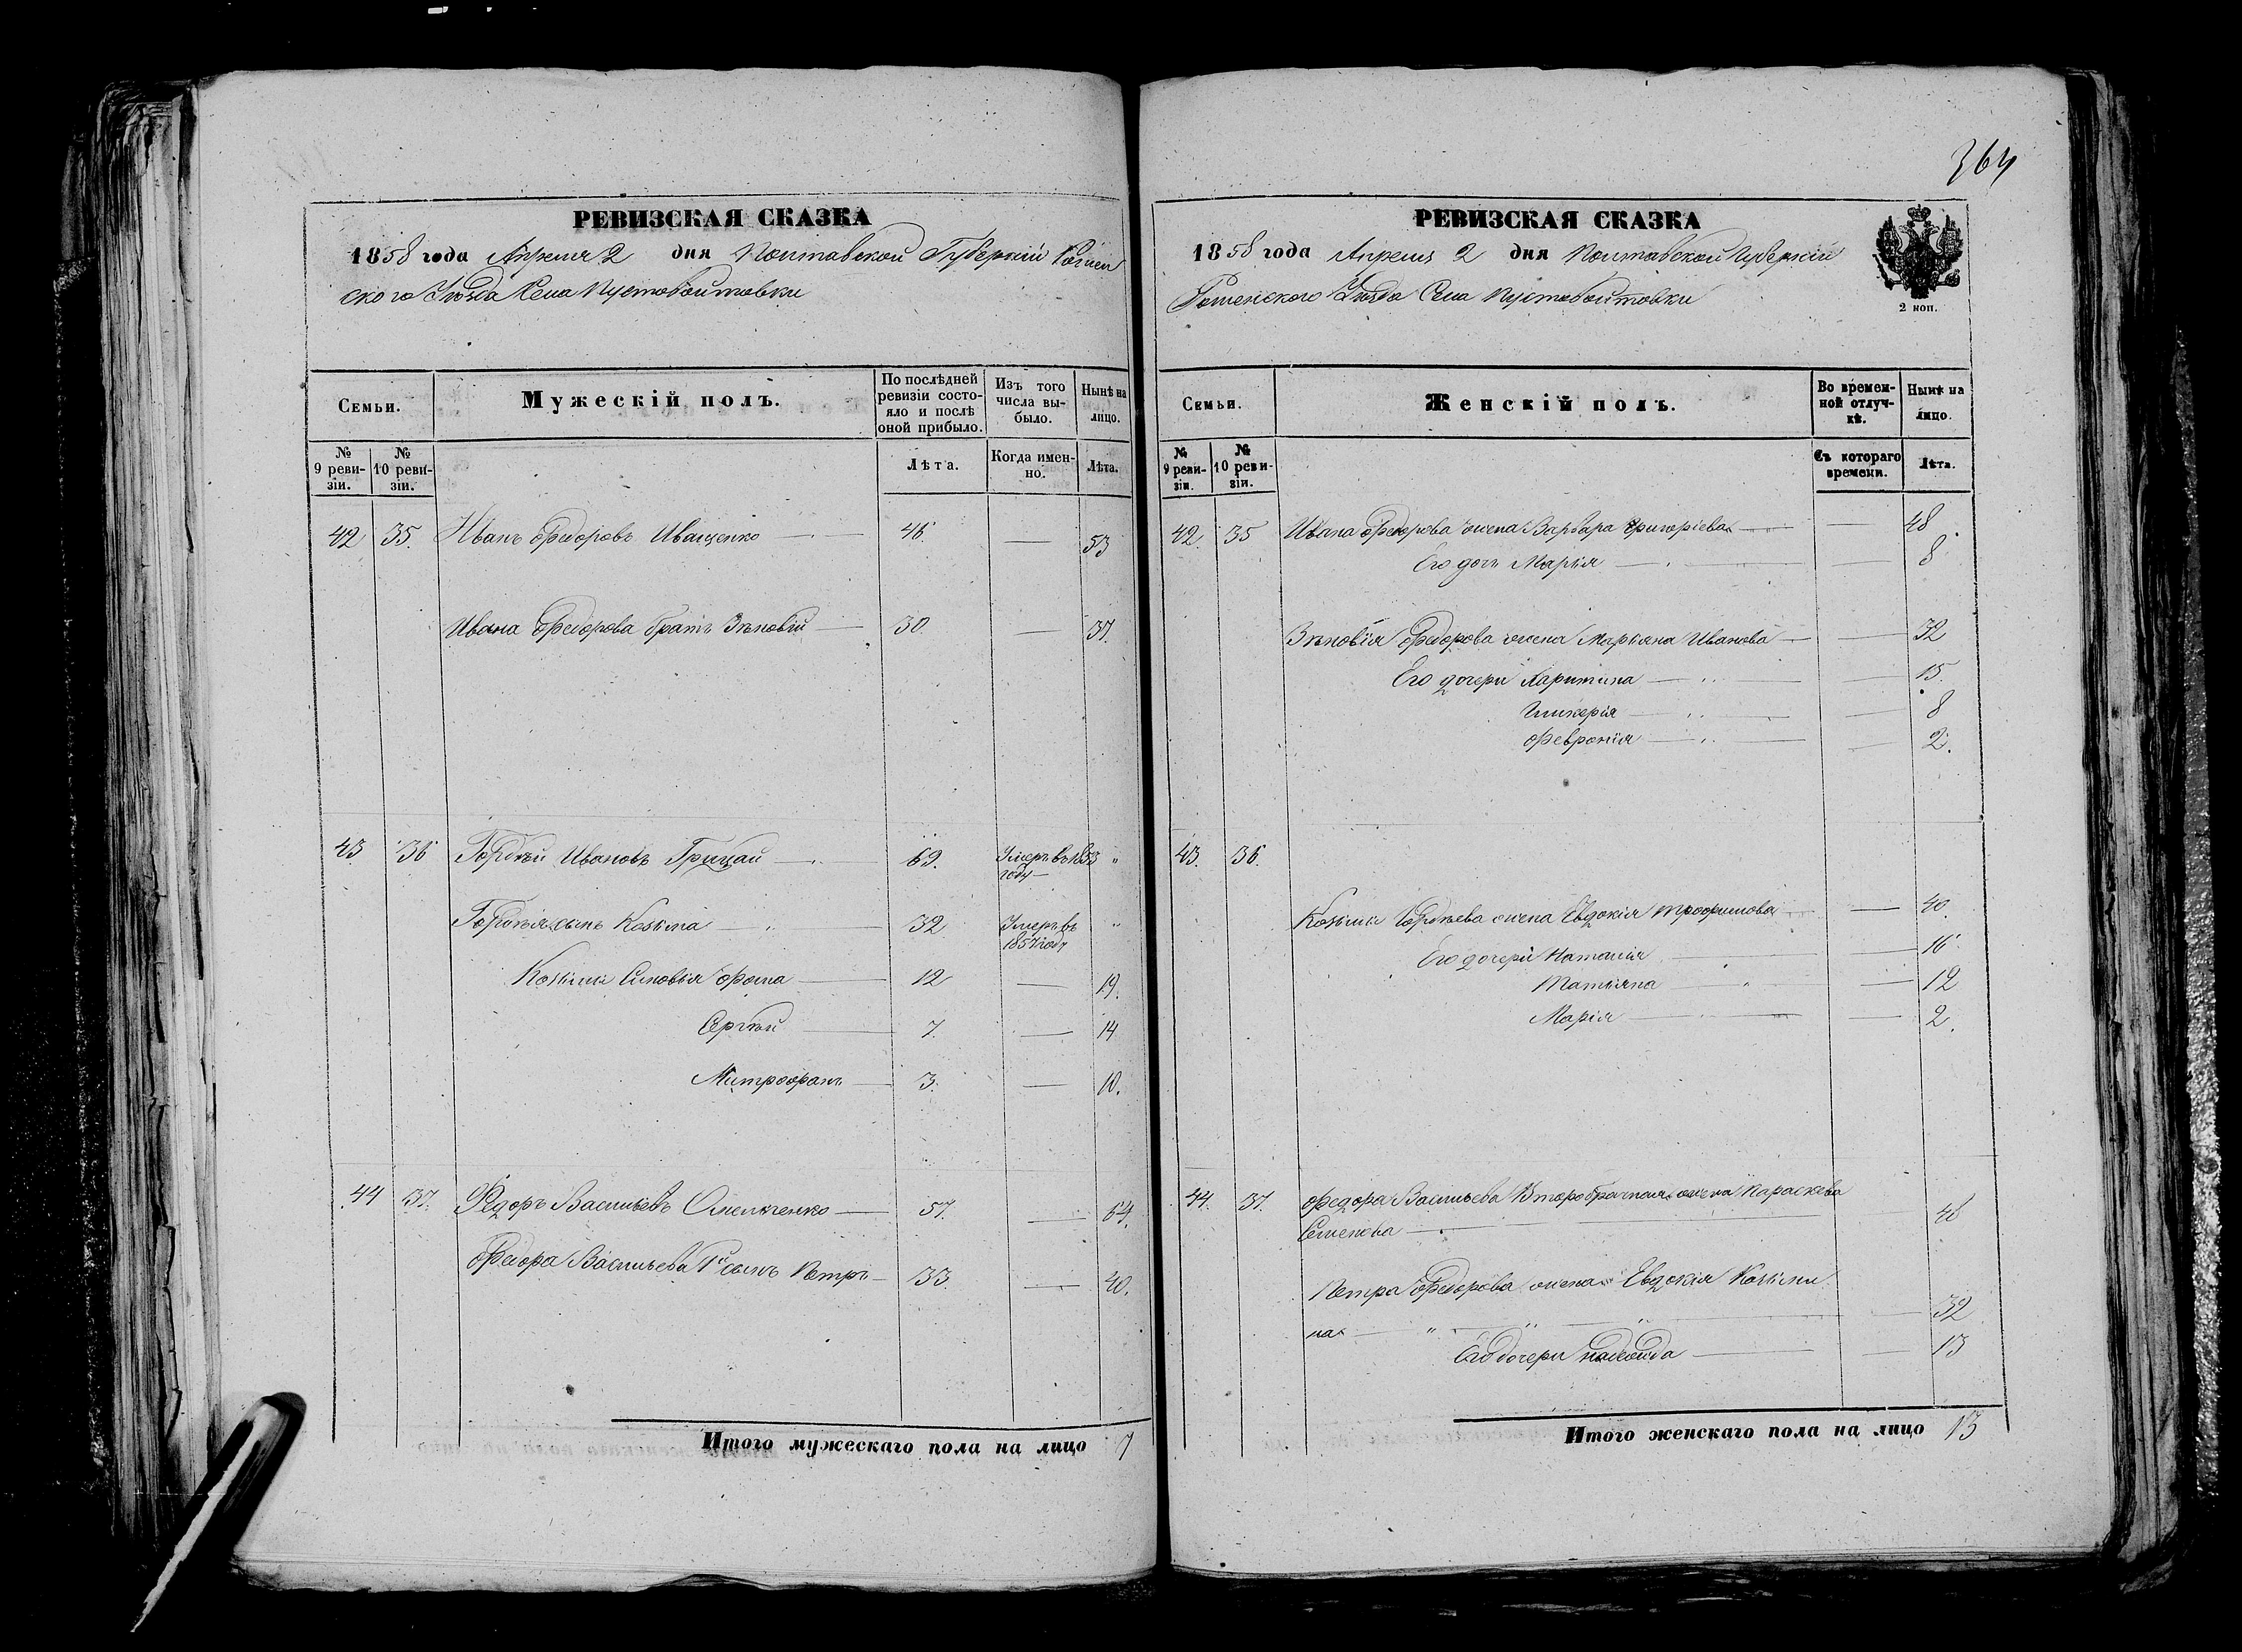 364
РЕВИЗСКАЯ СКАЗКА
1858 года Апреля 2 дня Полтавской Губерніи Ромен
ского Уѣзда Села Пустовойтовки
Семьи.
Мужескій полъ.
По послѣдней ревизіи состо-
яло и послѣ оной прибыло.
Изъ того числа вы-
было.
Нынѣ на лицо.
№ 9 реви-
зіи.
№ 10 реви-
зіи.
Лѣта.
Когда имен-
но.
Лѣта.
42 35. Иванъ Федоровъ Иващенко 46. 53
Ивана Федорова братъ Зѣновій 30. 37.
43 36 Гордѣй Ивановъ Грицай 69. Умеръ въ 1853 "
году
Гордѣя сынъ Козьма 32 Умеръ въ "
1857 году
Козьми Сыновья Фома 12 19.
Сергѣй 7. 14
Митрофанъ 3. 10.
44 37. Федоръ Васильевъ Омельченко 57. 64.
Федора Васильева 1й сынъ Петръ 33. 40.
Итого мужескаго пола на лицо 7
РЕВИЗСКАЯ СКАЗКА
1858 года Апреля 2 дня Полтавской Губерніи
Роменского Уѣзда Села Пустовойтовки
2 коп.
Семьи.
Женскій полъ.
Во времен-
ной отлуч-
кѣ.
Нынѣ на лицо.
№ 9 реви-
зіи.
№ 10 реви-
зіи.
Съ котораго времени.
Лѣта.
42. 35 Ивана Федорова жена Варвара Григоріева 48.
Его дочь Марья 8
Зѣновія Федорова жена Марьяна Иванова 32
Его дочери Харитина 15.
Гликерія 8
Февронія 2.
43. 36.
Козьми Гордѣева жена Евдокія Трофимова 40.
Его дочери Наталія 16
Татьяна 12
Марія 2.
44. 37. Федора Васильева Второбрачная жена Параскева
Семенова 48
Петра Федорова жена Евдокія Козьми
на 32
Его дочери Надежда 13
Итого женскаго пола на лицо 13